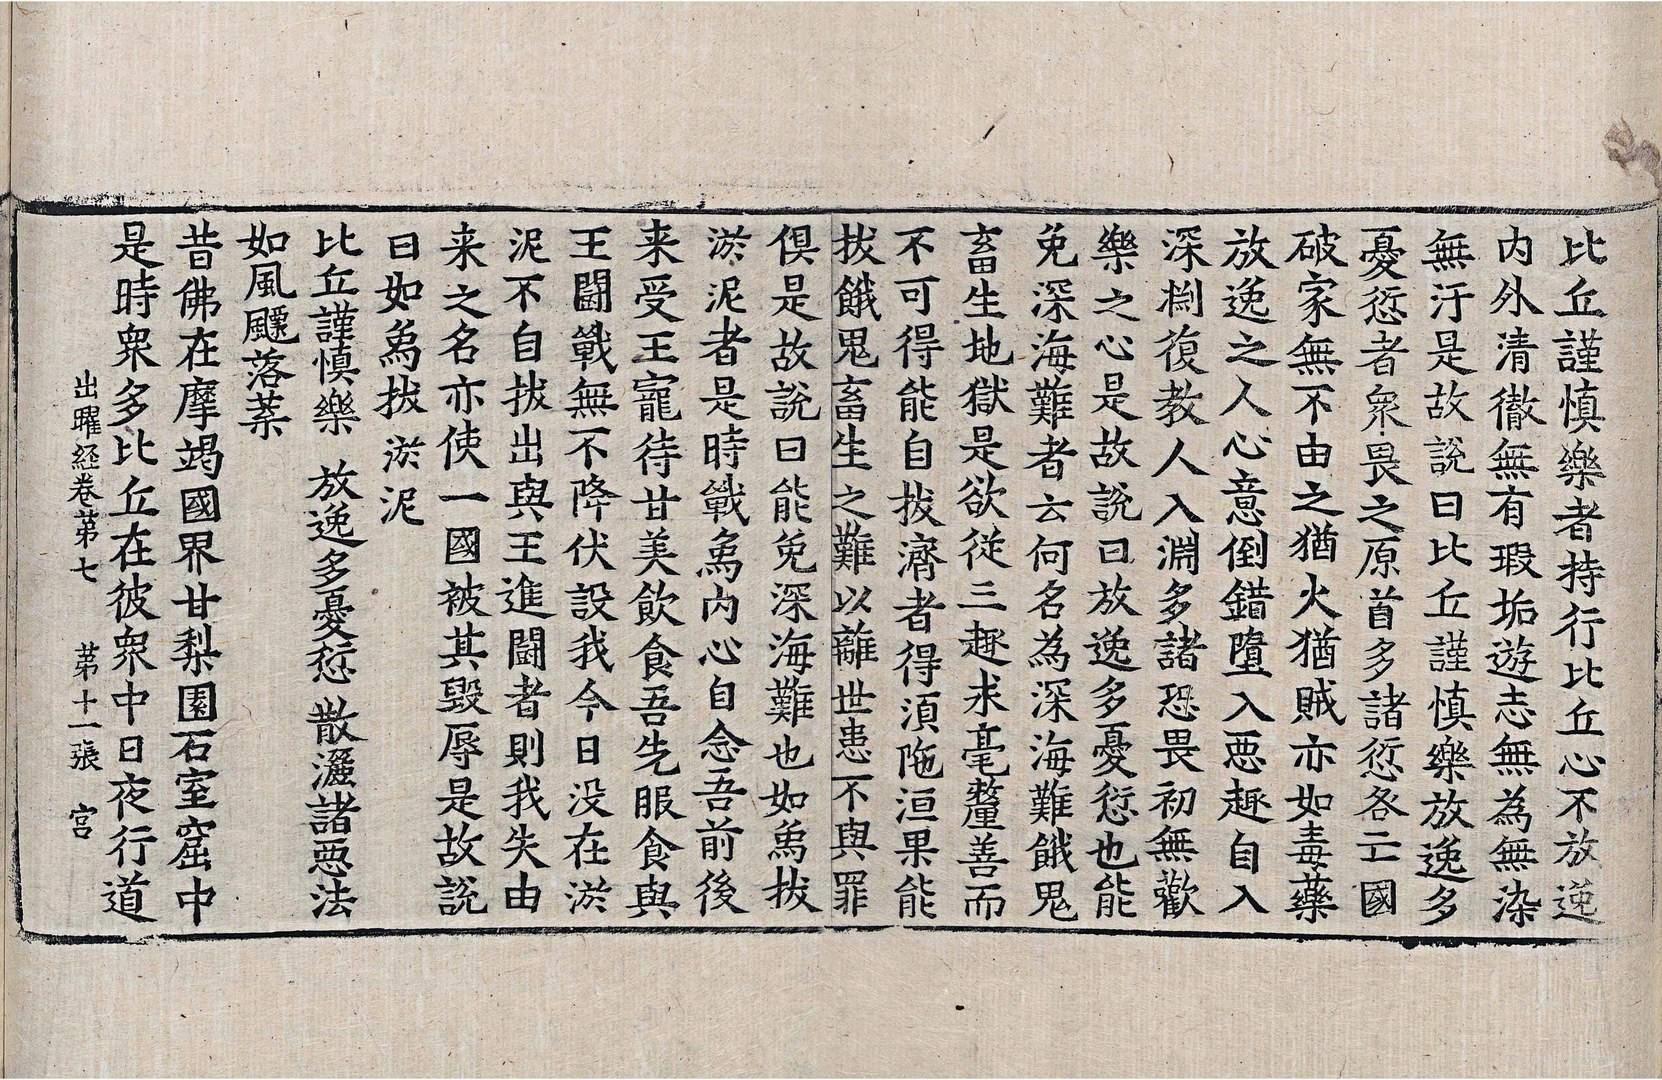 比丘謹慎樂者持行比丘心不放逸
内外清徹無有瑕垢遊志無為無染
無汙是故說曰比丘謹慎樂放逸多
憂愆者衆畏之原首多諸愆咎亡國
破家無不由之猶火猶賊亦如毒藥
放逸之人心意倒錯墮入惡趣自入
深榍復教人入淵多諸恐畏初無歡
樂之心是故說曰放逸多憂愆也能
免深海難者云何名為深海難餓鬼
畜生地獄是欲從三趣求毫釐善而
不可得能自拔濟者得須陁洹果能
拔餓鬼畜生之難以離世患不與罪
俱是故說曰能免深海難也如為拔
淤泥者是時戰象內心自念吾前後
来受王寵待甘美飲食吾先服食與
王鬪戰無不降伏設我今日没在淤
泥不自拔出與王進鬪者則我失由
来之名亦使一國被其毀辱是故說
曰如象拔淤泥
比丘謹慎樂 放逸多憂愆 散灑諸惡法
如風飄落葉
昔佛在摩竭國界甘梨園石室窟中
是時衆多比丘在彼衆中日夜行道
出曜経卷第七 第十一張 宮